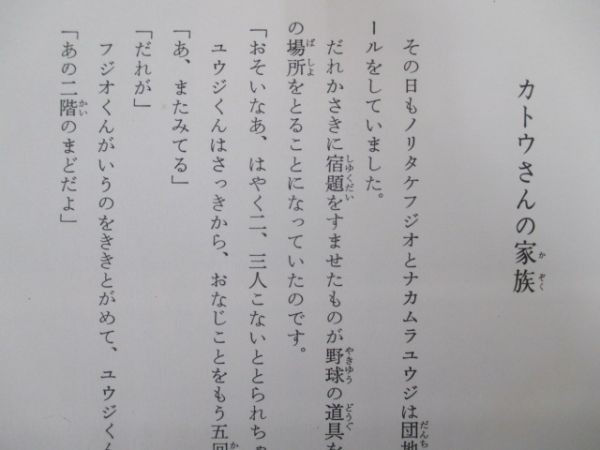 カトウさんの家族
その日もノリタケフジオとナカムラユウジは団地
ールをしていました。
だれかさきに宿題をすませたものが野球の道具を
の場所をとることになっていたのです。
「おそいなあ、はやく二、三人こないととられちゃ
ユウジくんはさっきから、おなじことをもう五回
「あ、またみてる」
「だれが」
フジオくんがいうのをききとがめて、ユウジくん
「あの二階のまどだよ」